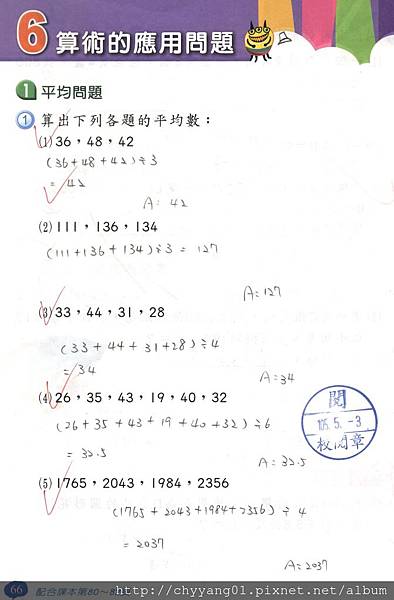 6 算術的應用問題
1 平均問題
1 算出下列各題的平均數：
(1) 36，48，42
(36+48+42)÷3
= 42
A: 42
(2) 111，136，134
(111+136+134)÷3 = 127
A: 127
(3) 33，44，31，28
(33+44+31+28)÷4
= 34
A: 34
(4) 26，35，43，19，40，32
(26+35+43+19+40+32)÷6
= 32.5
A: 32.5
閱
105.5.-3
校閱章
(5) 1765，2043，1984，2356
(1765+2043+1984+2356)÷4
= 2037
A: 2037
66 配合課本第80～
http://chyyang01.pixnet.net/album